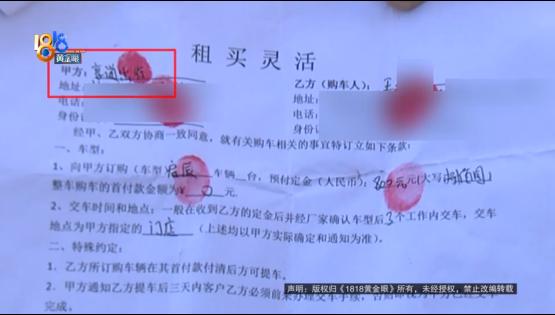 1818
黄金眼
租买灵活
甲方：享道出行
乙方（购车人）：王
地址：
电话：
电话：
身份
身份
经甲、乙双方协商一致同意，就有关购车相关的事宜特订立如下条款：
一、车型：
1、向甲方订购（车型启辰车辆 台，预付定金（人民币）：800元元（大写捌佰圆）
整车购车的首付款金额为¥ 0 元。
2、交车时间和地点：一般在收到乙方的定金后并经厂家确认车型后3个工作内交车，交车
地点为甲方指定的门店（上述均以甲方实际确定和通知为准）。
二、特殊约定：
1．乙方所订购车辆在其首付款付清后方可提车。
2．甲方通知乙方提车后三天内客户乙方必须前来办理交车手续，
完成。
声明：版权归《1818黄金眼》所有，未经授权，禁止改编转载